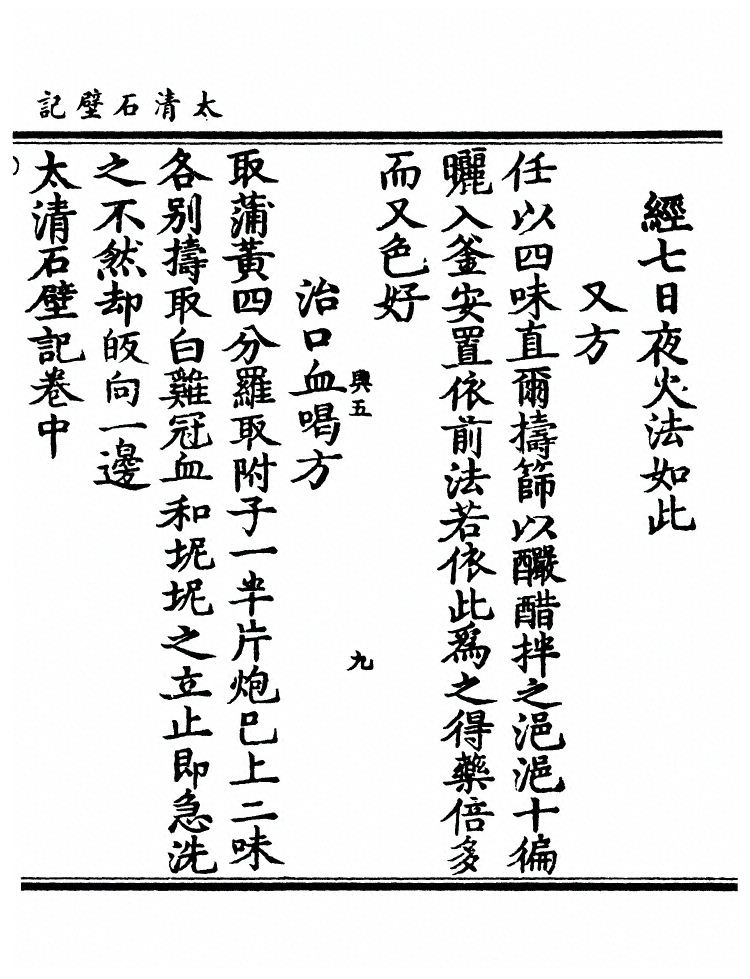 太清石壁記
經七日夜火法如此
又方
任以四味直爾擣篩以釅醋拌之浥浥十徧
曬入釜安置依前法若依此爲之得藥倍多
而又色好
興五 九
治口血喝方
取蒲黃四分羅取附子一半片炮巳上二味
各别擣取白雞冠血和坭坭之立止即急洗
之不然却皈向一邊
太清石壁記卷中